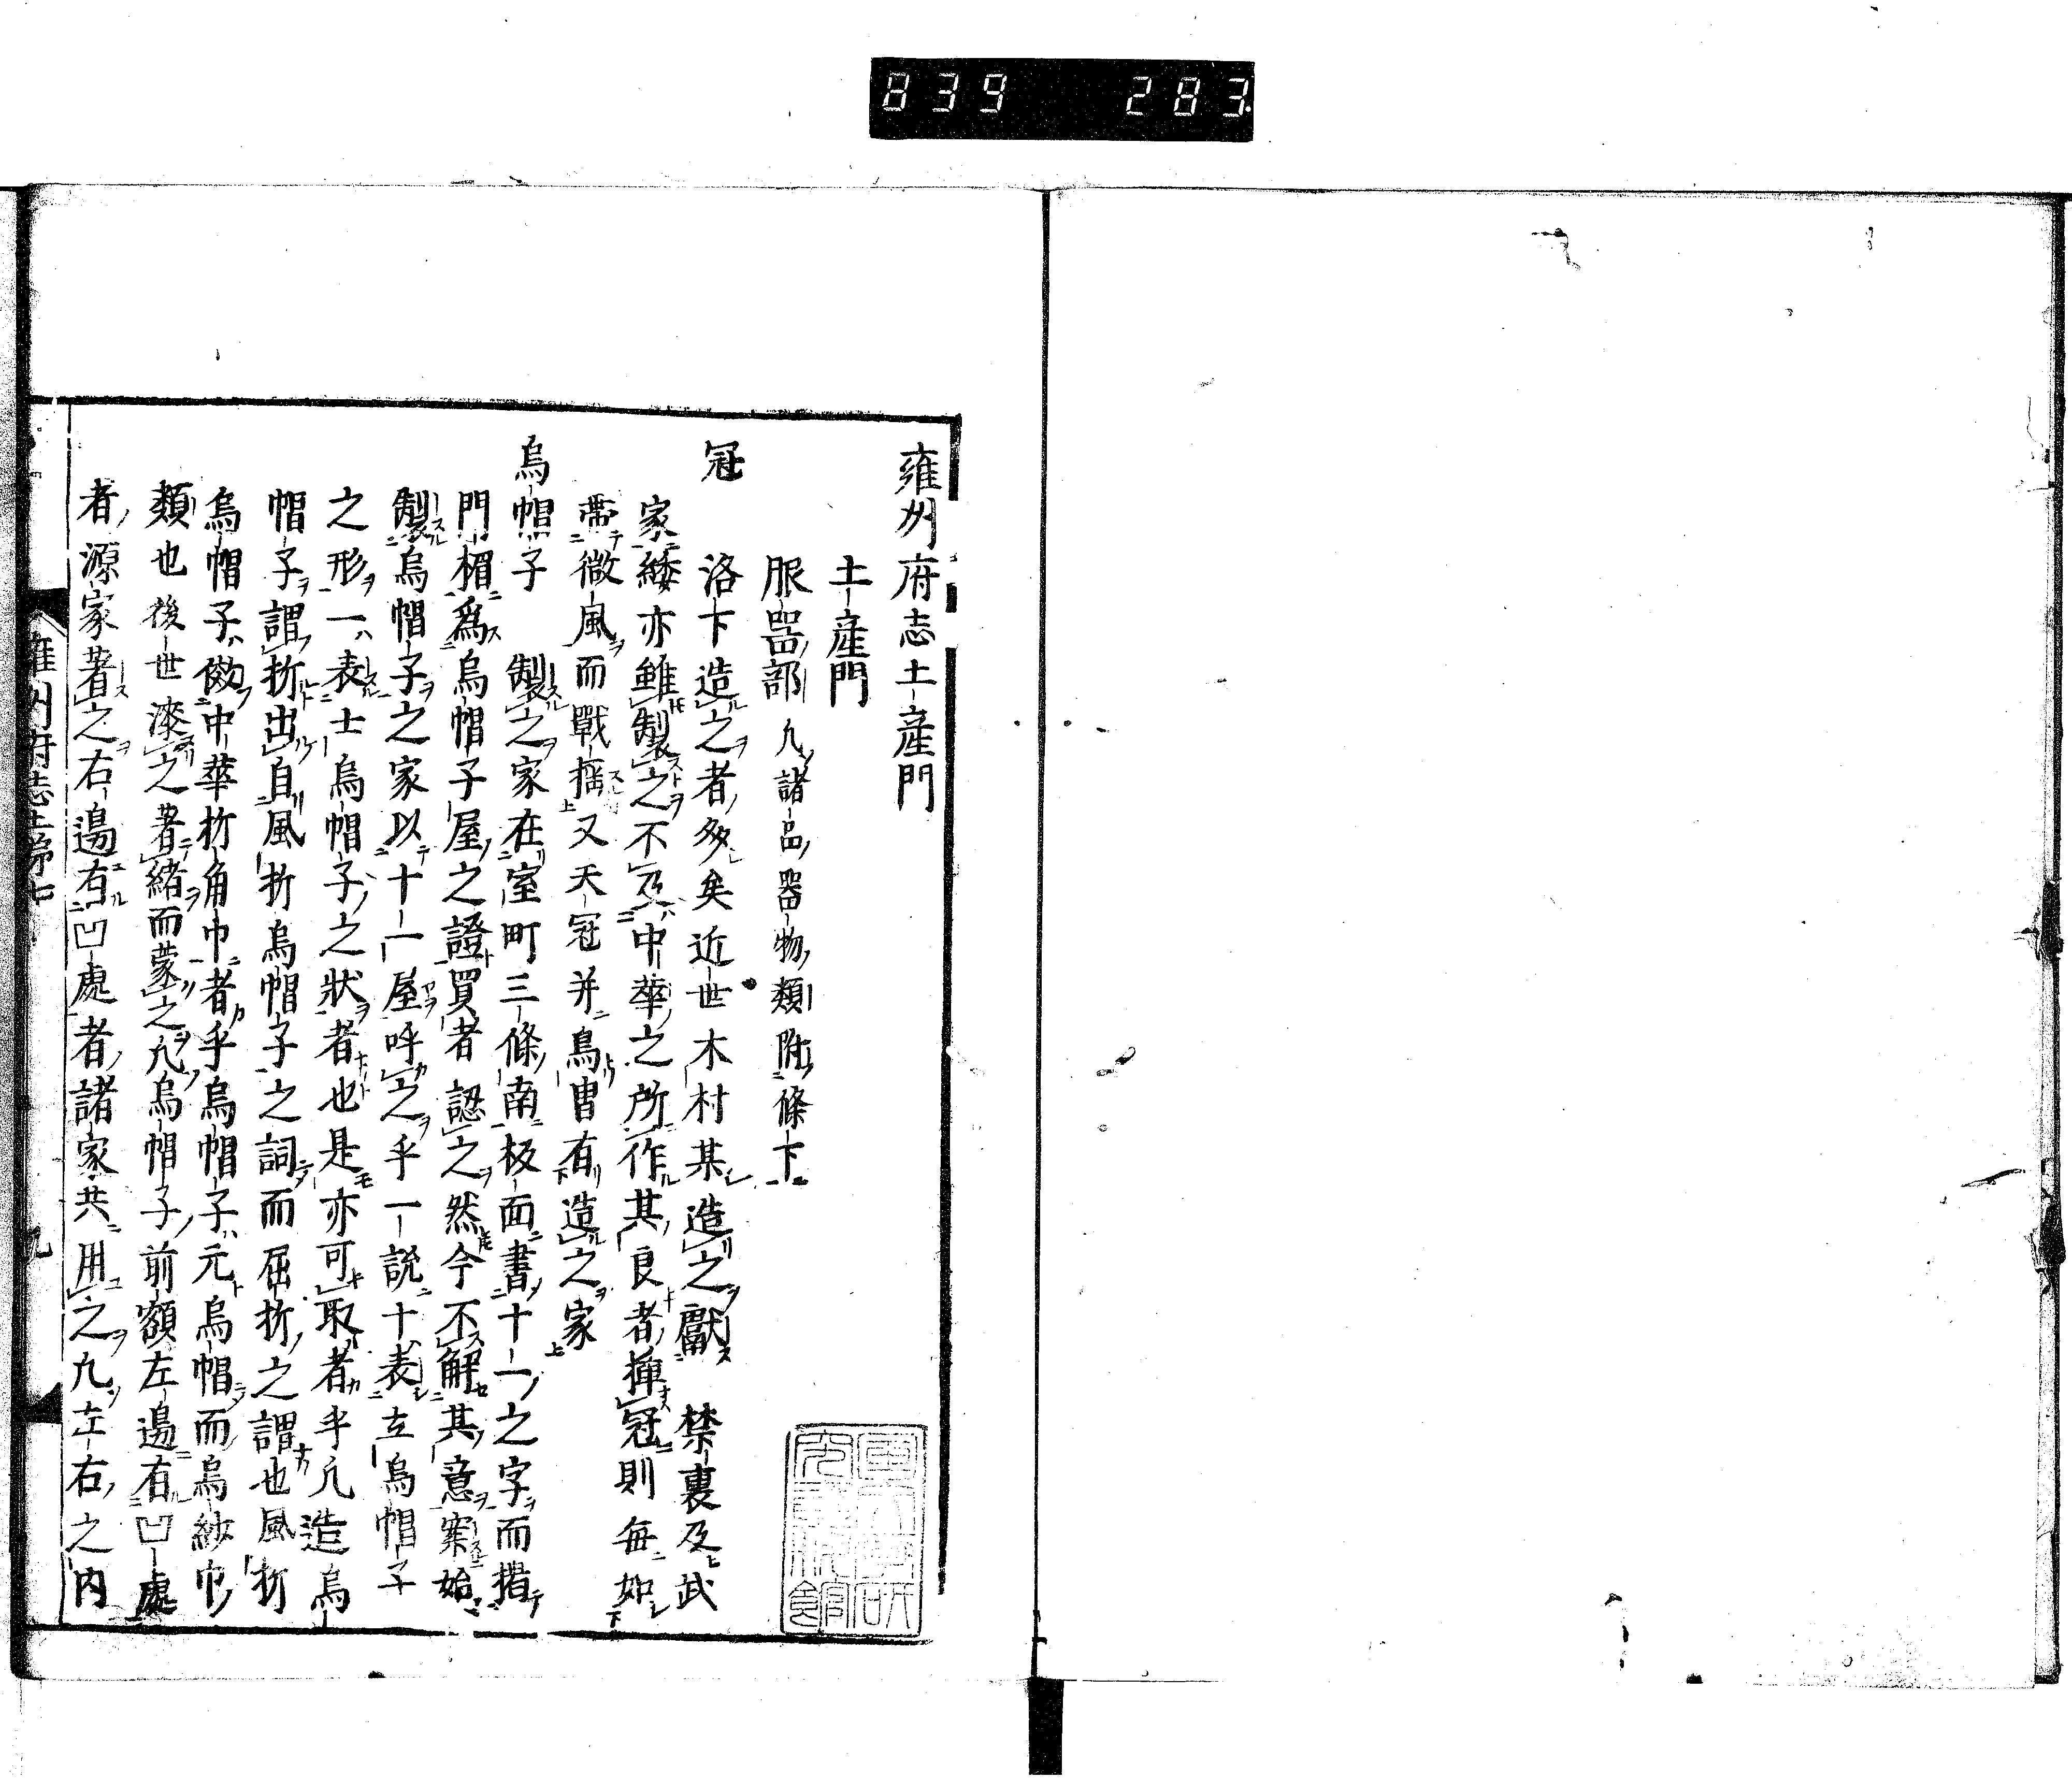 839 283
雍州府志土産門
土産門
服器部 凢諸品器物類附條下
冠
洛下造之者多矣近世木村某造之獻 禁裏及武
家緌亦雖製之不及中華之所作其良者揮冠則毎如
帯微風而戰揺又天冠并鳥冑有造之家
烏帽子 製之家在室町三條南板面書十一之字而掲
門楣爲烏帽子屋之證買者認之然今不解其意案始
製烏帽子之家以十一屋呼之乎一説十表立烏帽子
之形一表士烏帽子之状者也是亦可取者乎凢造烏
帽子謂折出自風折烏帽子之詞而屈折之謂也風折
烏帽子倣中華折角巾者乎烏帽子元烏帽而烏紗巾
類也後世漆之著緒而蒙之凢烏帽子前額左邊有凹處
者源家著之右邊有凹處者諸家共用之凢左右之内
雍州府志 七
九